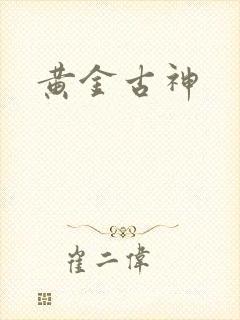 黄金古神
崔二偉